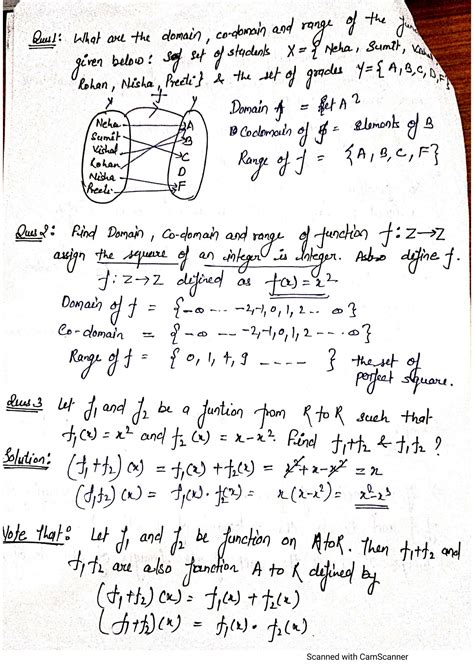 Ques1: What are the domain, co-domain and range of the
given below: set of students X = { Neha, Sumit,
Rohan, Nisha, Preeti} & the set of grades Y = { A, B, C, D, F}
f
X Y
Neha A
Sumit B
Vishal C
Rohan D
Nisha F
Preeti
Domain f = Set A
Codomain of f = elements of B
Range of f = {A, B, C, F}
Ques2: Find Domain, Co-domain and range of function f: Z→Z
assign the square of an integer is integer. Also define f.
f: Z→Z defined as f(x) = x²
Domain of f = {-∞ ... -2,-1,0,1,2 .. ∞}
Co-domain = {-∞ --- -2,-1,0,1,2 --- ∞}
Range of f = { 0, 1, 4, 9 ---- } the set of
perfect square.
Ques.3 Let f₁ and f₂ be a funtion from R to R such that
f₁(x) = x² and f₂(x) = x-x². Find f₁+f₂ & f₁f₂ ?
Solution: (f₁+f₂)(x) = f₁(x) + f₂(x) = x² + x - x² = x
(f₁f₂)(x) = f₁(x) . f₂(x) = x(x-x²) = x²-x³
Note that: Let f₁ and f₂ be function on A to R. Then f₁+f₂ and
f₁f₂ are also function A to R defined by
(f₁+f₂)(x) = f₁(x) + f₂(x)
(f₁f₂)(x) = f₁(x) . f₂(x)
Scanned with CamScanner